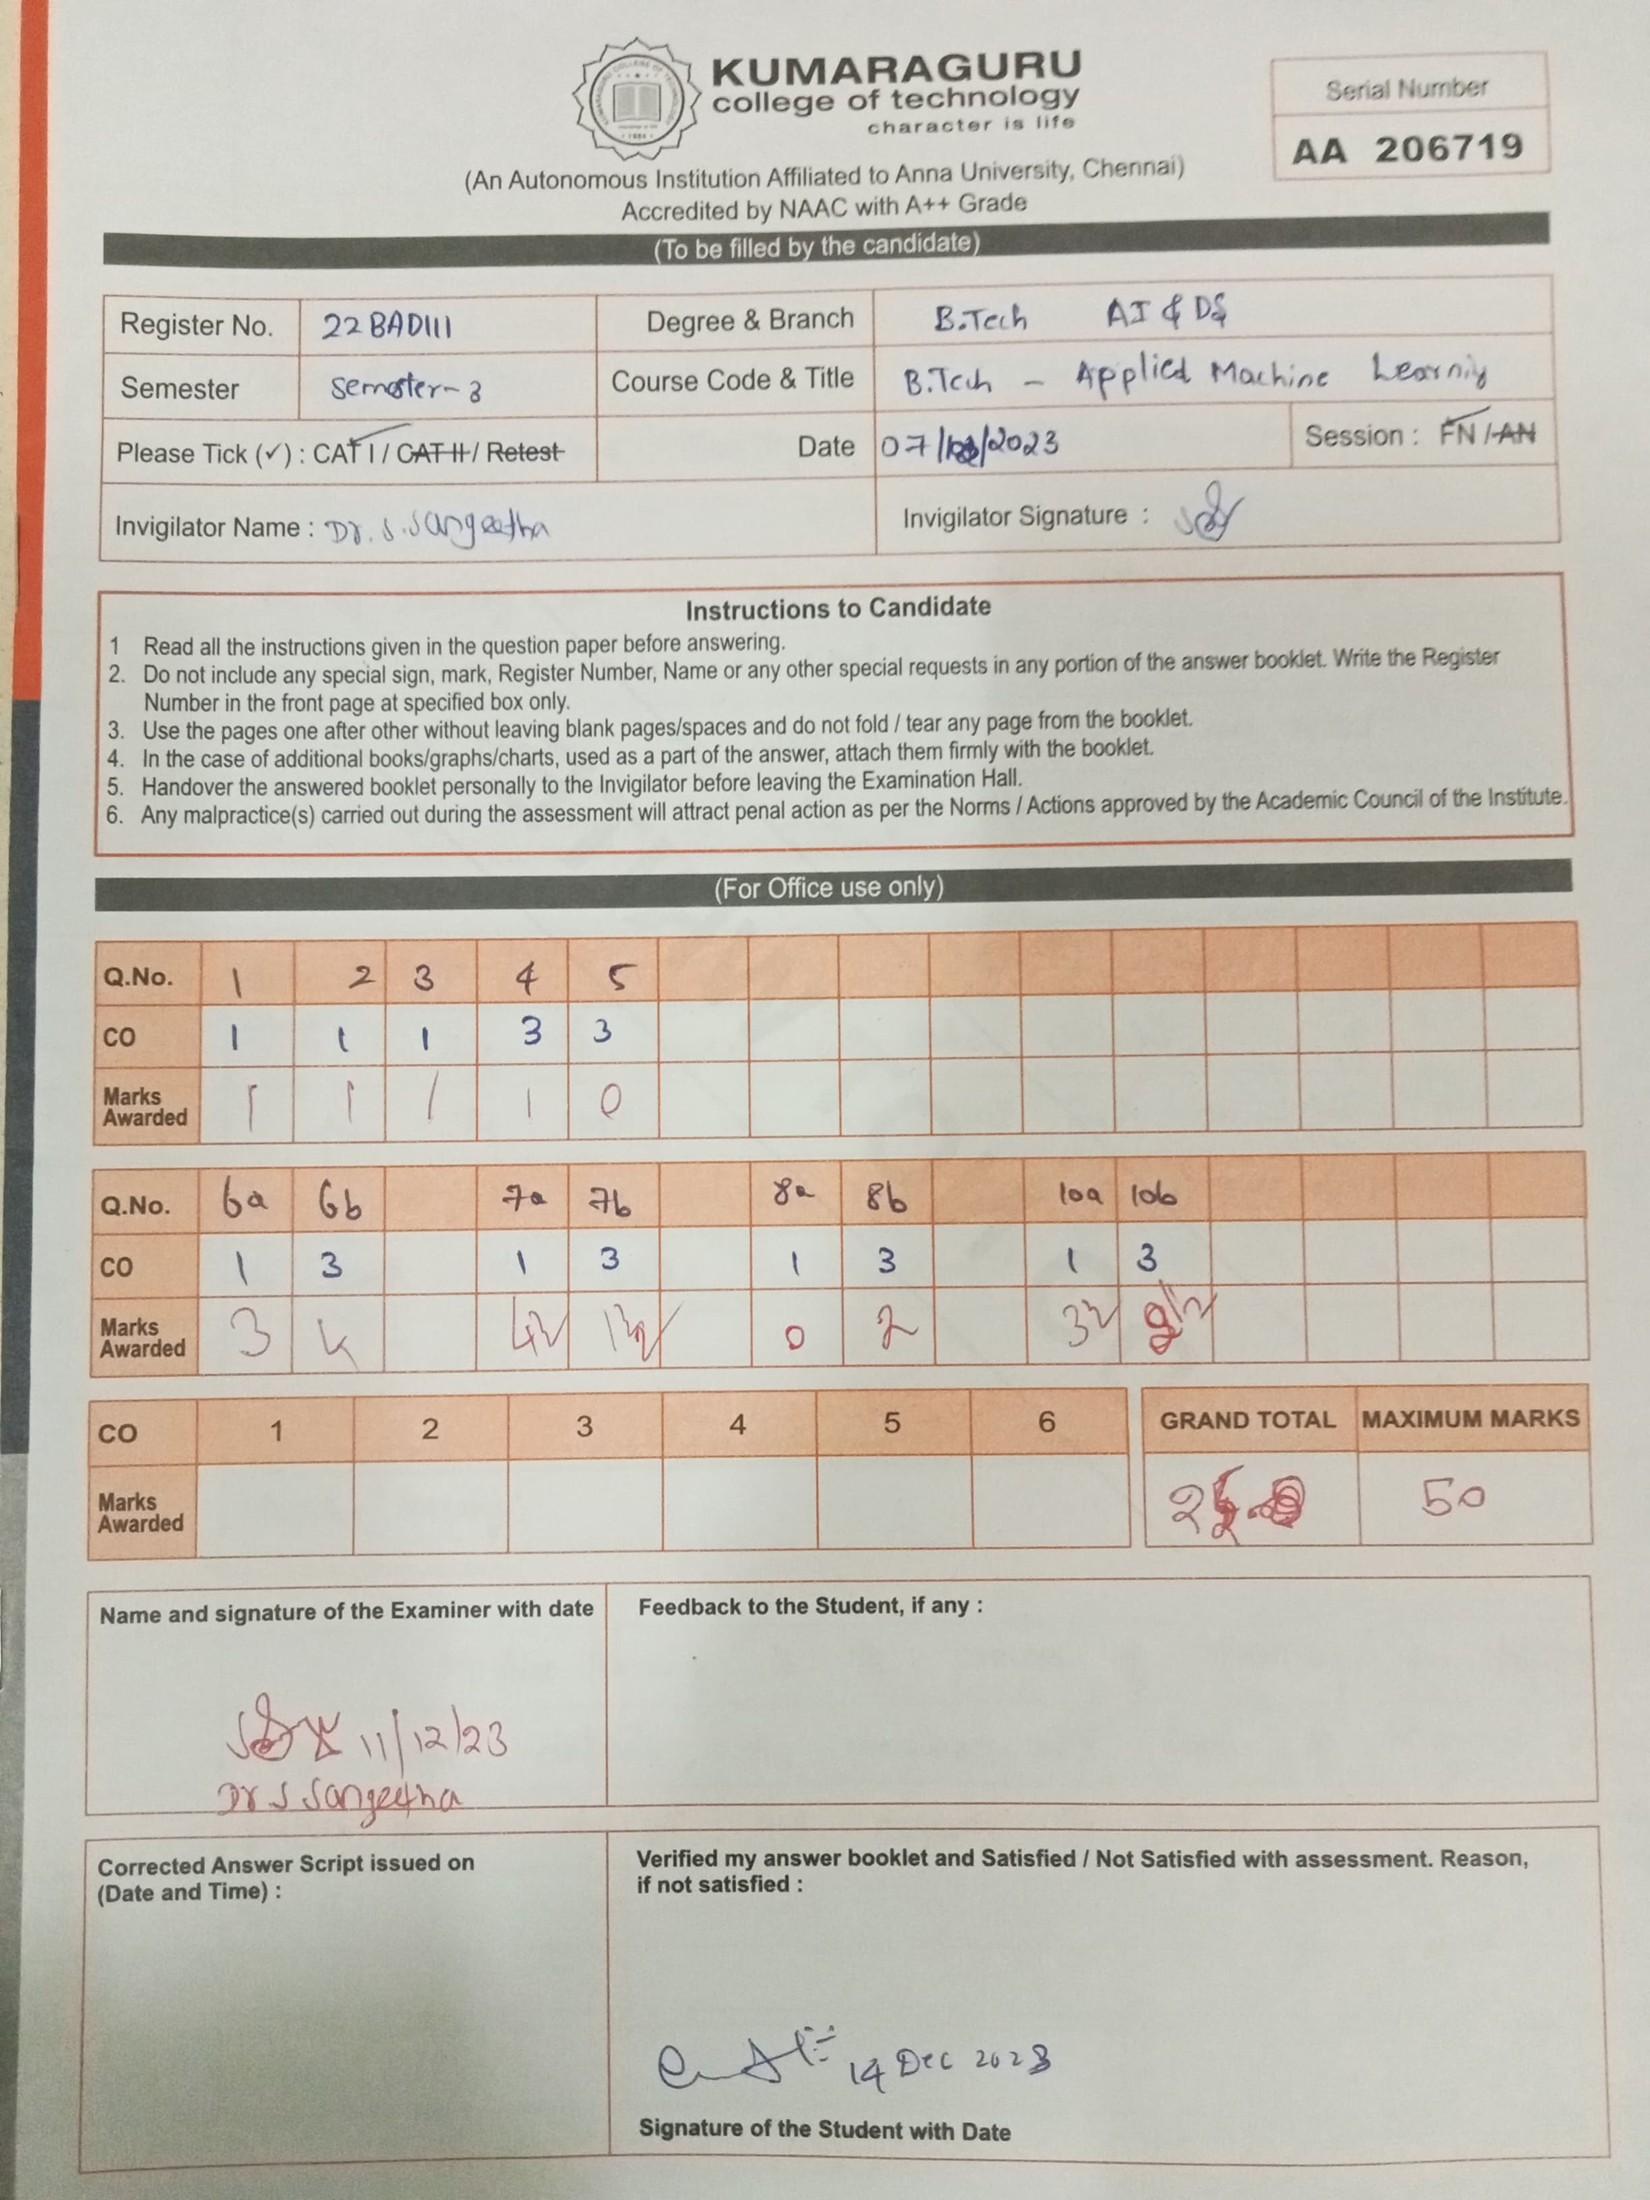 KUMARAGURU
college of technology
character is life
(An Autonomous Institution Affiliated to Anna University, Chennai)
Accredited by NAAC with A++ Grade
Serial Number
AA 206719
(To be filled by the candidate)
Register No. 22BAD111 Degree & Branch B.Tech AI & DS
Semester Semester-3 Course Code & Title B.Tech - Applied Machine Learning
Please Tick (✓) : CAT I / CAT II / Retest Date 07/ /2023 Session : FN / AN
Invigilator Name : Dr. S. Sangeetha Invigilator Signature :
Instructions to Candidate
1 Read all the instructions given in the question paper before answering.
2. Do not include any special sign, mark, Register Number, Name or any other special requests in any portion of the answer booklet. Write the Register
Number in the front page at specified box only.
3. Use the pages one after other without leaving blank pages/spaces and do not fold / tear any page from the booklet.
4. In the case of additional books/graphs/charts, used as a part of the answer, attach them firmly with the booklet.
5. Handover the answered booklet personally to the Invigilator before leaving the Examination Hall.
6. Any malpractice(s) carried out during the assessment will attract penal action as per the Norms / Actions approved by the Academic Council of the Institute.
(For Office use only)
Q.No. 1 2 3 4 5
CO 1 1 1 3 3
Marks Awarded 1 1 1 1 0
Q.No. 6a 6b 7a 7b 8a 8b 10a 10b
CO 1 3 1 3 1 3 1 3
Marks Awarded 3 4 0 2
CO 1 2 3 4 5 6 GRAND TOTAL MAXIMUM MARKS
Marks Awarded 50
Name and signature of the Examiner with date
11/12/23
Dr S Sangeetha
Feedback to the Student, if any :
Corrected Answer Script issued on
(Date and Time) :
Verified my answer booklet and Satisfied / Not Satisfied with assessment. Reason,
if not satisfied :
14 Dec 2023
Signature of the Student with Date